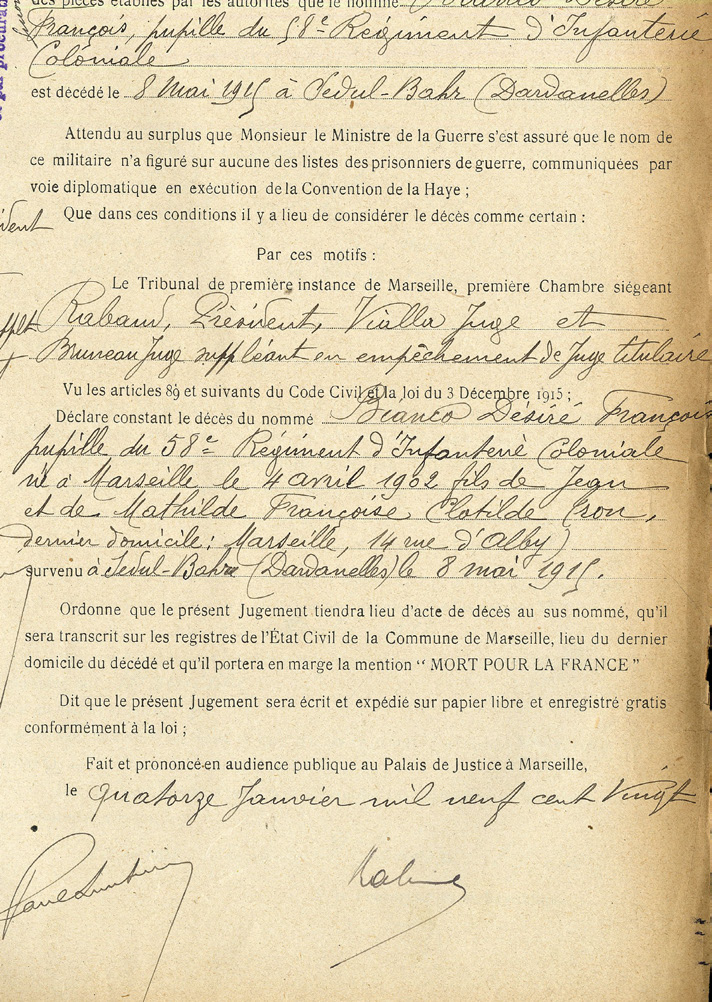 des pièces établies par les autorités que le nommé Bianco Désiré
François, pupille du 58e Régiment d'Infanterie
Coloniale
est décédé le 8 Mai 1915 à Sedul-Bahr (Dardanelles)
Attendu au surplus que Monsieur le Ministre de la Guerre s'est assuré que le nom de
ce militaire n'a figuré sur aucune des listes des prisonniers de guerre, communiquées par
voie diplomatique en exécution de la Convention de la Haye ;
Que dans ces conditions il y a lieu de considérer le décès comme certain :
Par ces motifs :
Le Tribunal de première instance de Marseille, première Chambre siégeant
Rabaud, Président, Vialla Juge et
Bruneau Juge suppléant en empêchement de Juge titulaire
Vu les articles 89 et suivants du Code Civil et la loi du 3 Décembre 1915 ;
Déclare constant le décès du nommé Bianco Désiré François
pupille du 58e Régiment d'Infanterie Coloniale
né à Marseille le 4 avril 1902 fils de Jean
et de Mathilde Françoise Clotilde
dernier domicile : Marseille, 14 rue d'Alby)
survenu à Sedul-Bahr (Dardanelles) le 8 mai 1915.
Ordonne que le présent Jugement tiendra lieu d'acte de décès au sus nommé, qu'il
sera transcrit sur les registres de l'État Civil de la Commune de Marseille, lieu du dernier
domicile du décédé et qu'il portera en marge la mention “ MORT POUR LA FRANCE ”
Dit que le présent Jugement sera écrit et expédié sur papier libre et enregistré gratis
conformément à la loi ;
Fait et prononcé en audience publique au Palais de Justice à Marseille,
le quatorze Janvier mil neuf cent Vingt